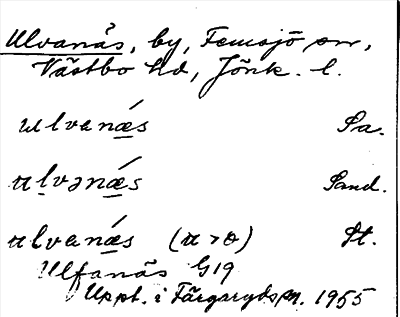 Ulvanäs, by, Femsjö sn,
Västbo hd, Jönk. l.
ulvanǽs Sa.
ulvənǽs Sand.
ulvanǽs (u > ɵ) St.
Ulfanäs G19
Uppt. i Färgaryds sn. 1955